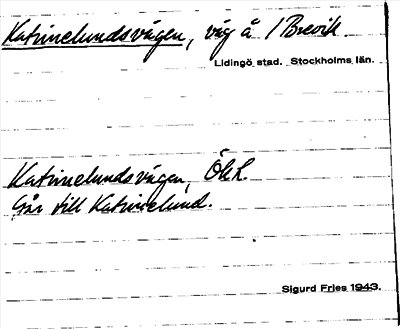 Katrinelundsvägen, väg å / Brevik
Lidingö stad. Stockholms län.
Katrinelundsvägen, ÖhL.
Går till Katrinelund.
Sigurd Fries 1943.